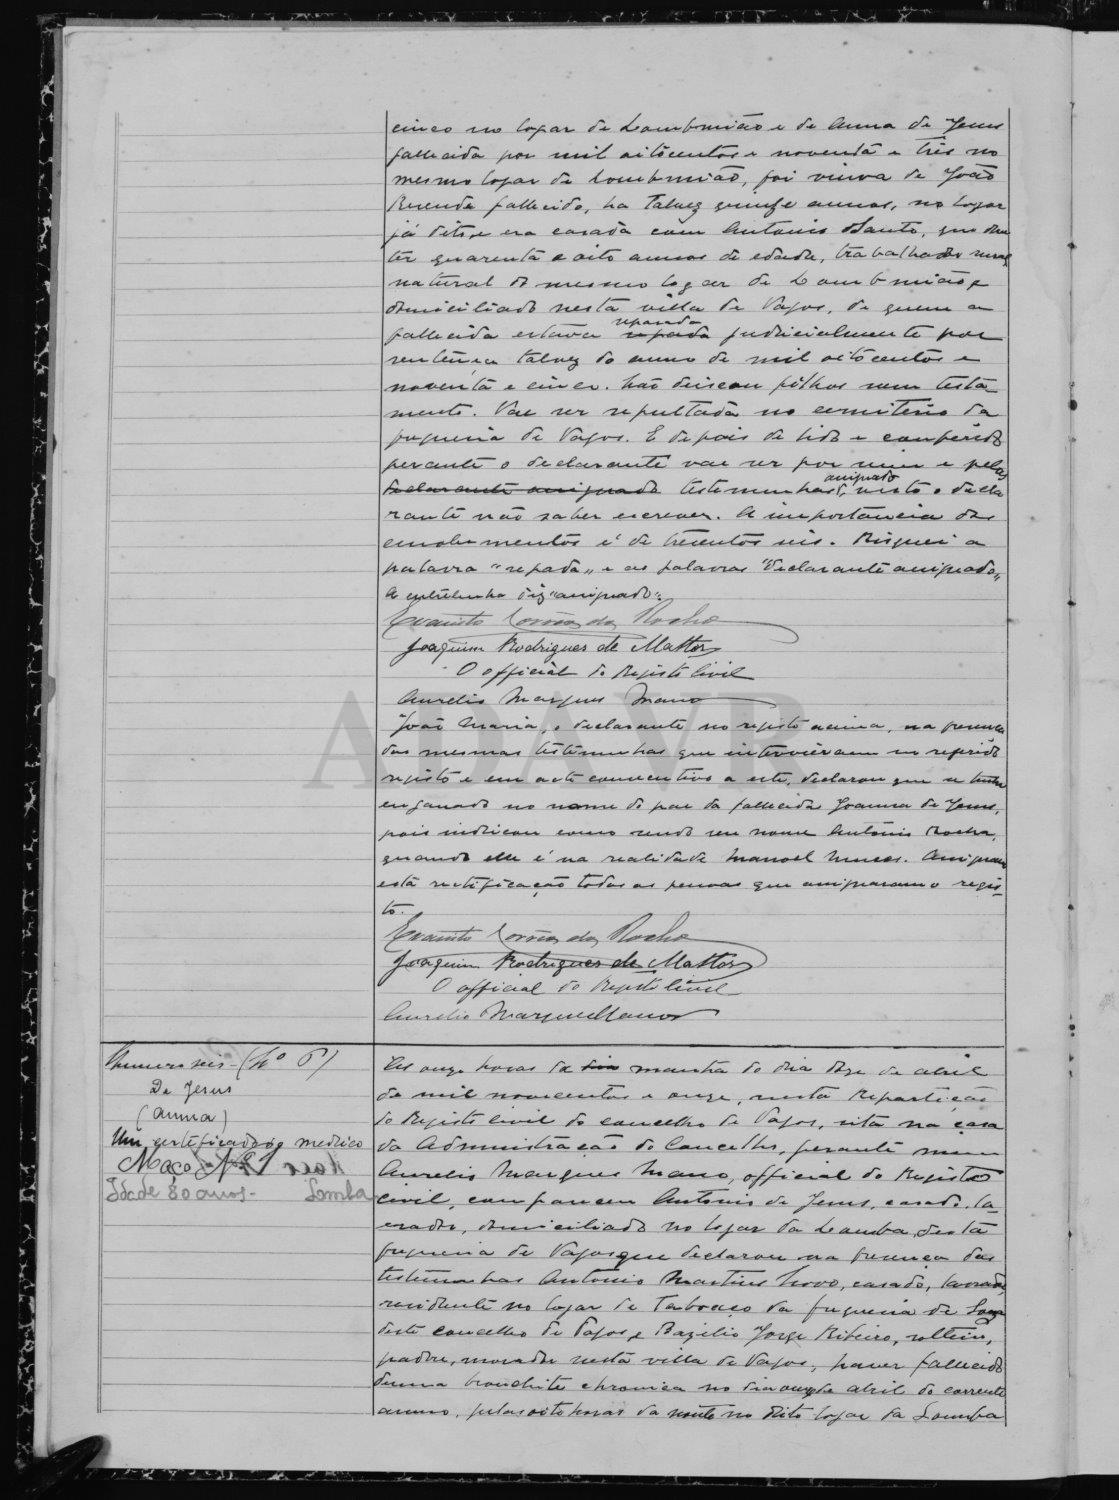 cinco no logar de Lombomião e de Anna de Jesus
fallecida por mil oitocentos e noventa e três no
mesmo logar de Lombomião, foi viuva de João
Resende fallecido, ha talvez quinze annos, no logar
já dito, e era casada com Antonio Santo, que deve
ter quarenta e oito annos de edade, trabalhador rural
natural do mesmo logar de Lombomião e
domiciliado nesta villa de Vagos, de quem a
separada
fallecida estava repada judicialmente por
sentença talvez do anno de mil oitocentos e
noventa e cinco. Não deixou filhos nem testa-
mento. Vae ser sepultada no cemiterio da
freguesia de Vagos. E depois de lido e conferido
perante o declarante vae ser por mim e pelas
assignado
declarante assignado testemunhas, visto o decla
rante não saber escrever. A importancia dos
emolumentos é de trezentos reis. Risquei a
palavra "repada" e as palavras "declarante assignado"
A entrelinha diz "assignado".
Evaristo Corrêa da Rocha
Joaquim Rodrigues de Mattos
O official do Registo Civil
Aurelio Marques Mano
João Maria, o declarante no registo acima, na presença
das mesmas testemunhas que intervieram no referido
registo e em acto consecutivo a este, declarou que se tinha
enganado no nome do pae da fallecida Joanna de Jesus,
pois indicou como sendo seu nome Antonio Rocha,
quando elle é na realidade Manoel Nunes. Assignam
esta rectificação todas as pessoas que assignaram o regis-
to.
Evaristo Corrêa da Rocha
Joaquim Rodrigues de Mattos
O official do Registo Civil
Aurelio Marques Mano
ADAVR
Numero seis - (Nº 6)
De Jesus
(Anna)
Um certificado medico
Maço Nº 1
Idade 80 anos - Lomba
As onze horas da manhã do dia doze de abril
de mil novecentos e onze, nesta Repartição
do Registo Civil do concelho de Vagos, sita na casa
da Administração do Concelho, perante mim
Aurelio Marques Mano, official do Registo
Civil, compareceu Antonio de Jesus, casado, la-
vrador, domiciliado no logar da Lomba, desta
freguesia de Vagos que declarou na presença das
testemunhas Antonio Martins Novo, casado, lavrador,
residente no logar de Taboaço da freguesia de Soza
deste concelho de Vagos, e Bazilio Jorge Ribeiro, solteiro,
padre, morador nesta villa de Vagos, haver fallecido
duma bronchite chronica no dia onze de abril do corrente
anno, pelas oito horas da noite no dito logar da Lomba